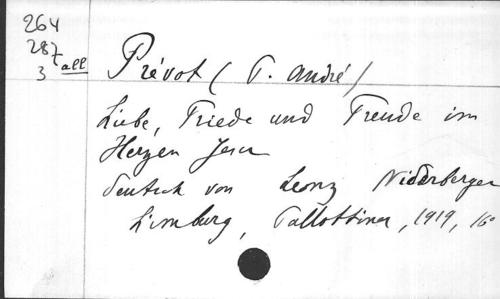 264
287
3 all
Prévot (P. André)
Liebe, Friede und Freude im
Herzen Jesu
deutsch von Leonz Niderberger
Limburg, Pallottiner, 1919, 16°